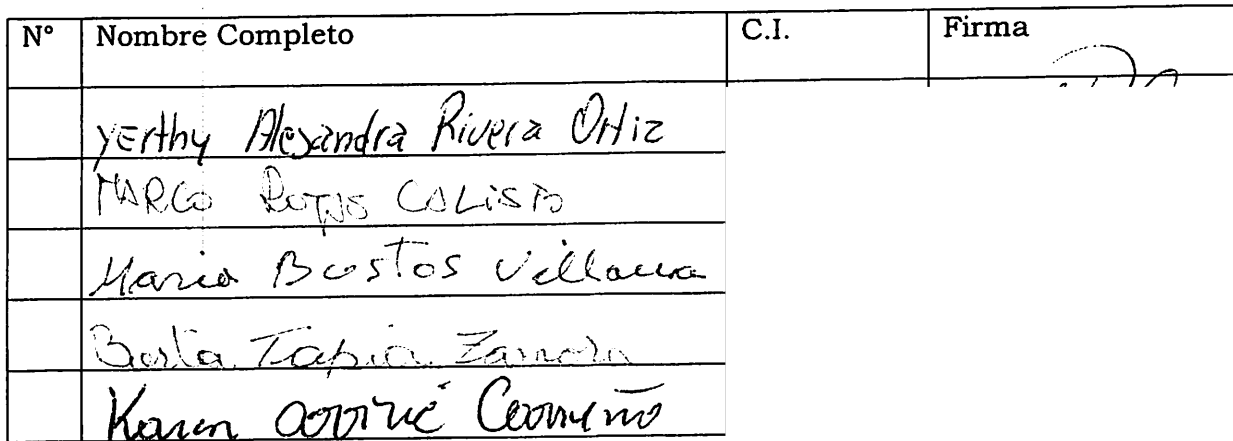 N° Nombre Completo C.I. Firma
YErthy Alejandra Rivera Ortiz
MARCO ROJAS CALISTO
Maria Bustos Villacura
Berta Tapia Zamora
Karen Carreño